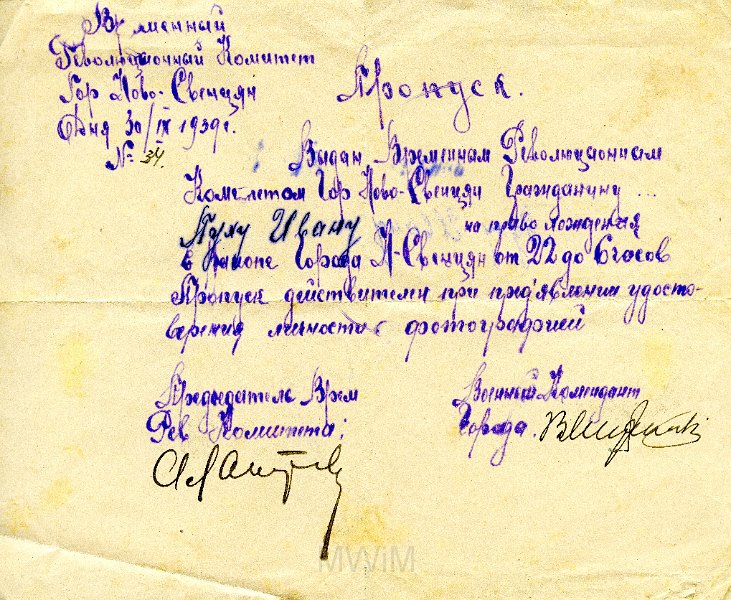 Временный
Революционный Комитет
Гор Ново-Свенцян
Дня 30/IX 1939г.
№ 34.
Пропуск.
Выдан Временным Революционным
Комитетом Гор Ново-Свенцян Гражданину ...
Пуху Ивану на право хождения
в Районе Города Н-Свенцян от 22 до 6 часов
Пропуск действителен при предъявлении удосто-
верения личности с фотографией
Председатель Врем
Рев Комитета:
Военный Комендант
Города.
MWiM